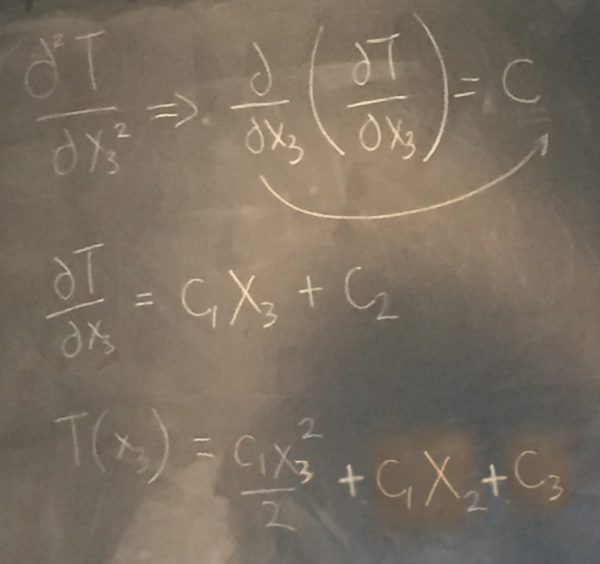 ∂²T/∂x₃² ⇒ ∂/∂x₃ (∂T/∂x₃) = C
∂T/∂x₃ = C₁X₃ + C₂
T(x₃) = C₁X₃²/2 + C₁X₂ + C₃